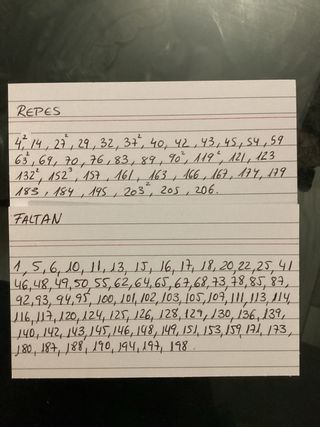 REPES
4², 14, 27², 29, 32, 37², 40, 42, 43, 45, 54, 59
63², 69, 70, 76, 83, 89, 90², 119², 121, 123
132², 152³, 157, 161, 163, 166, 167, 174, 179
183, 184, 195, 203², 205, 206.
FALTAN
1, 5, 6, 10, 11, 13, 15, 16, 17, 18, 20, 22, 25, 41
46, 48, 49, 50, 55, 62, 64, 65, 67, 68, 73, 78, 85, 87,
92, 93, 94, 95, 100, 101, 102, 103, 105, 107, 111, 113, 114,
116, 117, 120, 124, 125, 126, 128, 129, 130, 136, 139,
140, 142, 143, 145, 146, 148, 149, 151, 153, 159, 171, 173,
180, 187, 188, 190, 194, 197, 198.